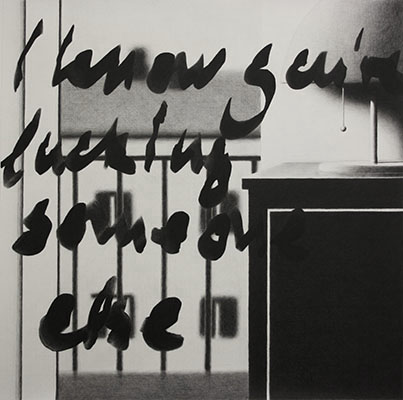 I know you're
fucking
someone
else